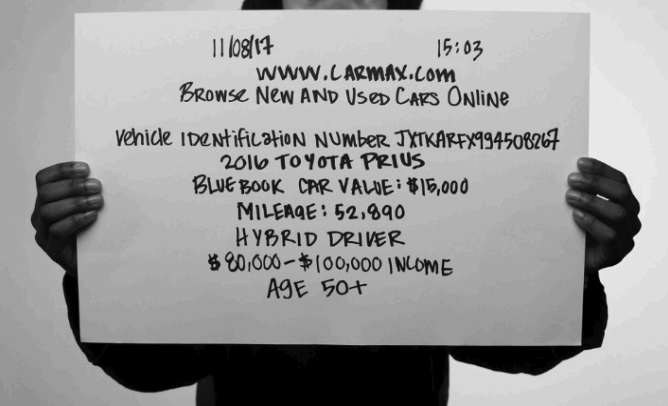 11/08/17 15:03
WWW.CARMAX.COM
BROWSE NEW AND USED CARS ONLINE
VEHICLE IDENTIFICATION NUMBER JXTKARFX994508267
2016 TOYOTA PRIUS
BLUE BOOK CAR VALUE: $15,000
MILEAGE: 52,890
HYBRID DRIVER
$80,000-$100,000 INCOME
AGE 50+